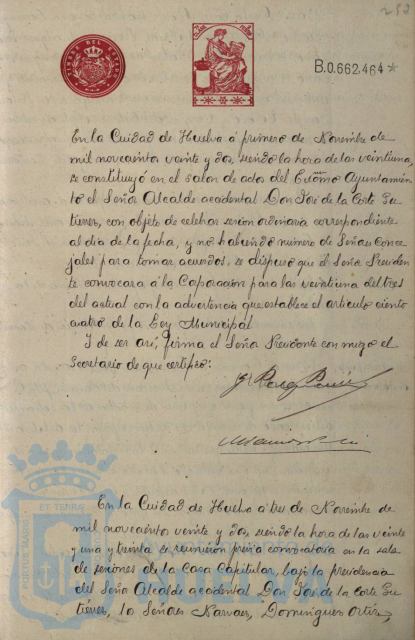 252
TIMBRE DEL ESTADO
B.0.662.464*
En la Ciudad de Huelva á primero de Noviembre de
mil novecientos veinte y dos, siendo la hora de las veintiuna,
se constituyó en el salon de actos del Excmo Ayuntamien
to el Señor Alcalde accidental Don José de la Corte Gu
tierrez, con objeto de celebrar sesion ordinaria correspondiente
al dia de la fecha, y no habiendo número de Señores Conce
jales para tomar acuerdos, se dispuso que el Señor Presiden
te convocara á la Corporación para las veintiuna del tres
del actual con la advertencia que establece el articulo ciento
cuatro de la Ley Municipal
Y de ser así, firma el Señor Presidente con migo el
Secretario de que certifico:
En la Ciudad de Huelva á tres de Noviembre de
mil novecientos veinte y dos, siendo la hora de las veinte
y una y treinta se reunieron previa convocatoria en la sala
de sesiones de la Casa Capitular, bajo la presidencia
del Señor Alcalde accidental Don José de la Corte Gu
tiérrez, los Señores Narvaez, Dominguez Ortiz,